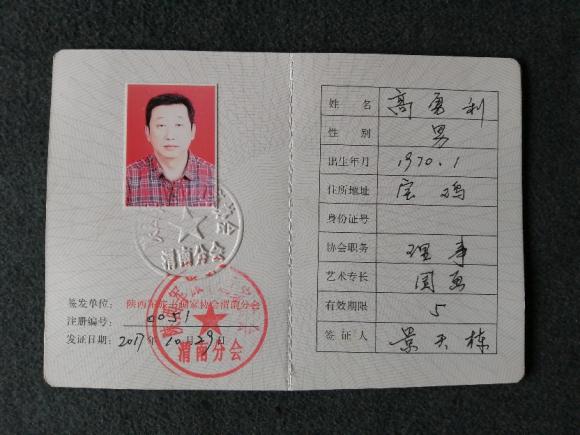 渭南分会
签发单位：陕西 画家协会渭南分会
注册编号：0051
发证日期：2017年10月29日
渭南分会
姓名 高勇利
性别 男
出生年月 1970.1
住所地址 宝鸡
身份证号
协会职务 理事
艺术专长 国画
有效期限 5
签证人 景天栋